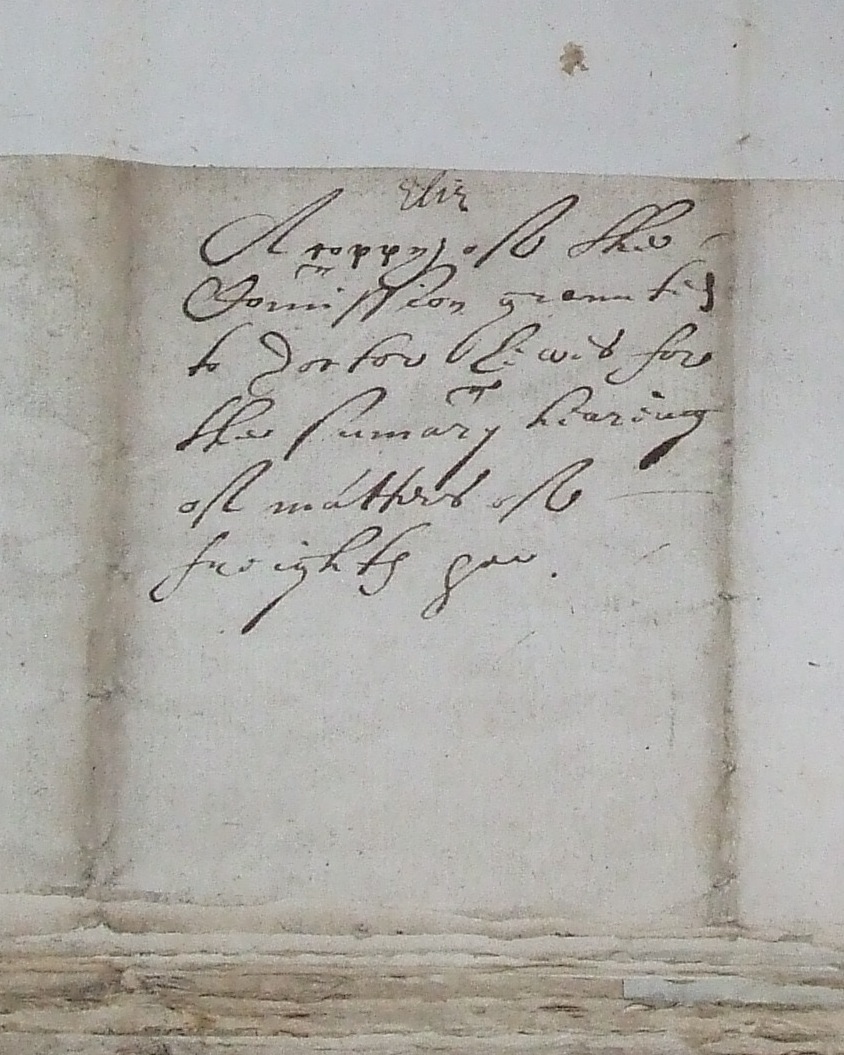 Eliz
A coppy of the
Comission graunted
to Doctor Lewis for
the sumary hearing
of matters of
freights